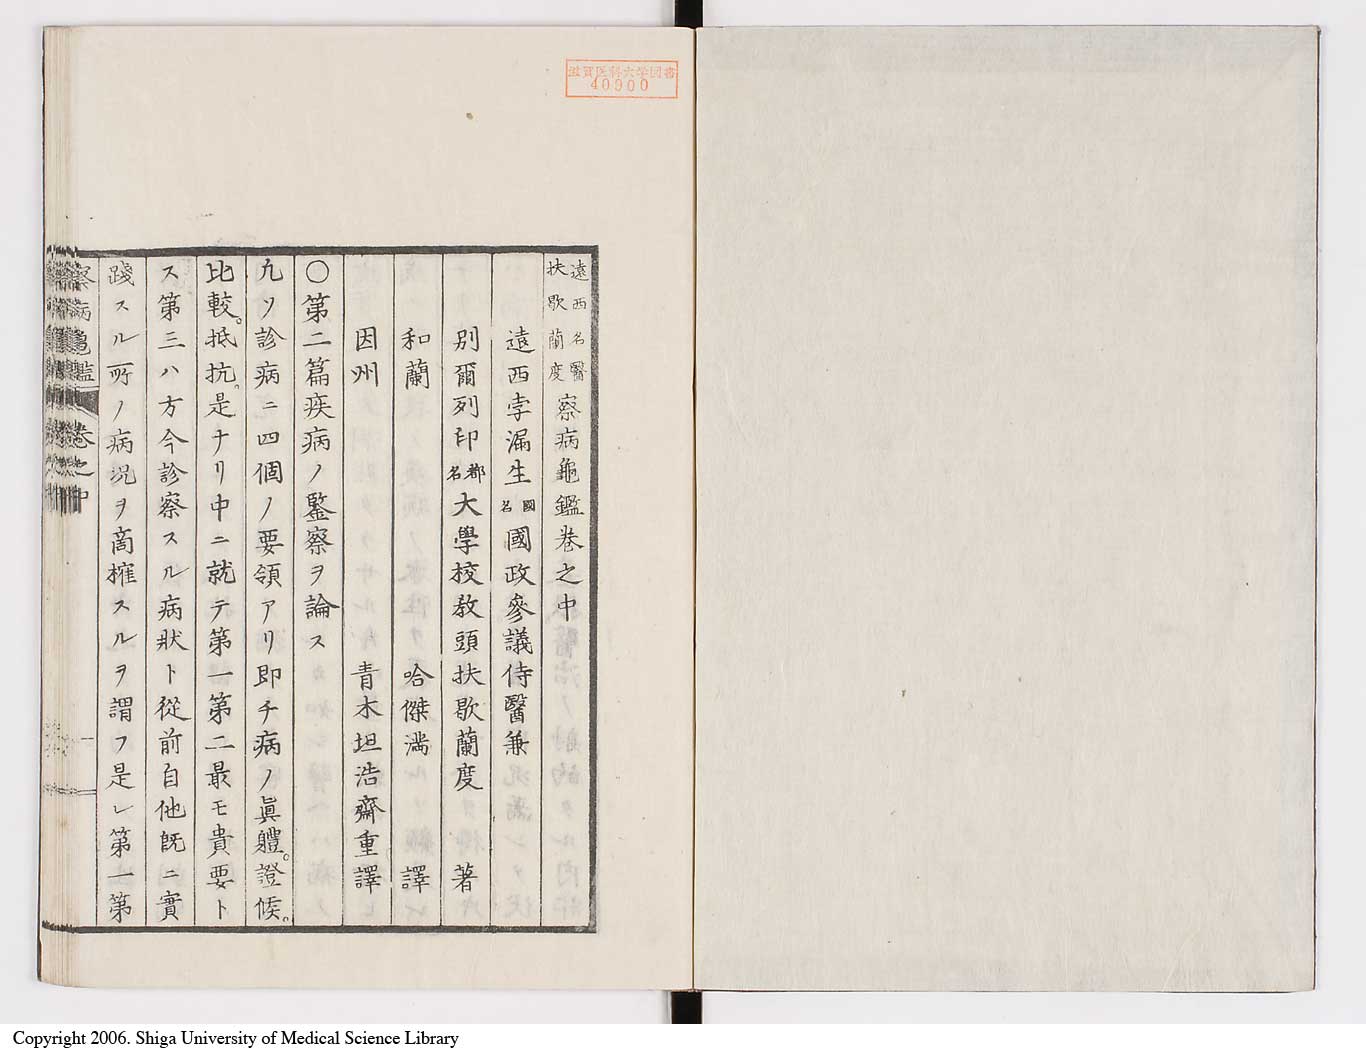 滋賀医科大学図書
40900
遠西名醫
扶歇蘭度
察病龜鑑卷之中
遠西孛漏生國名國政參議侍醫兼
別爾列印都名大學校教頭扶歇蘭度 著
和蘭 哈傑満 譯
因州 青木坦浩齋重譯
〇第二篇疾病ノ鑒察ヲ論ス
凡ソ診病ニ四個ノ要領アリ即チ病ノ眞軆。證候。
比較。抵抗。是ナリ中ニ就テ第一第二最モ貴要ト
ス第三ハ方今診察スル病狀ト從前自他既ニ實
踐スル所ノ病況ヲ啇搉スルヲ謂フ是レ第一第
察病龜鑑 卷之中 一
Copyright 2006. Shiga University of Medical Science Library